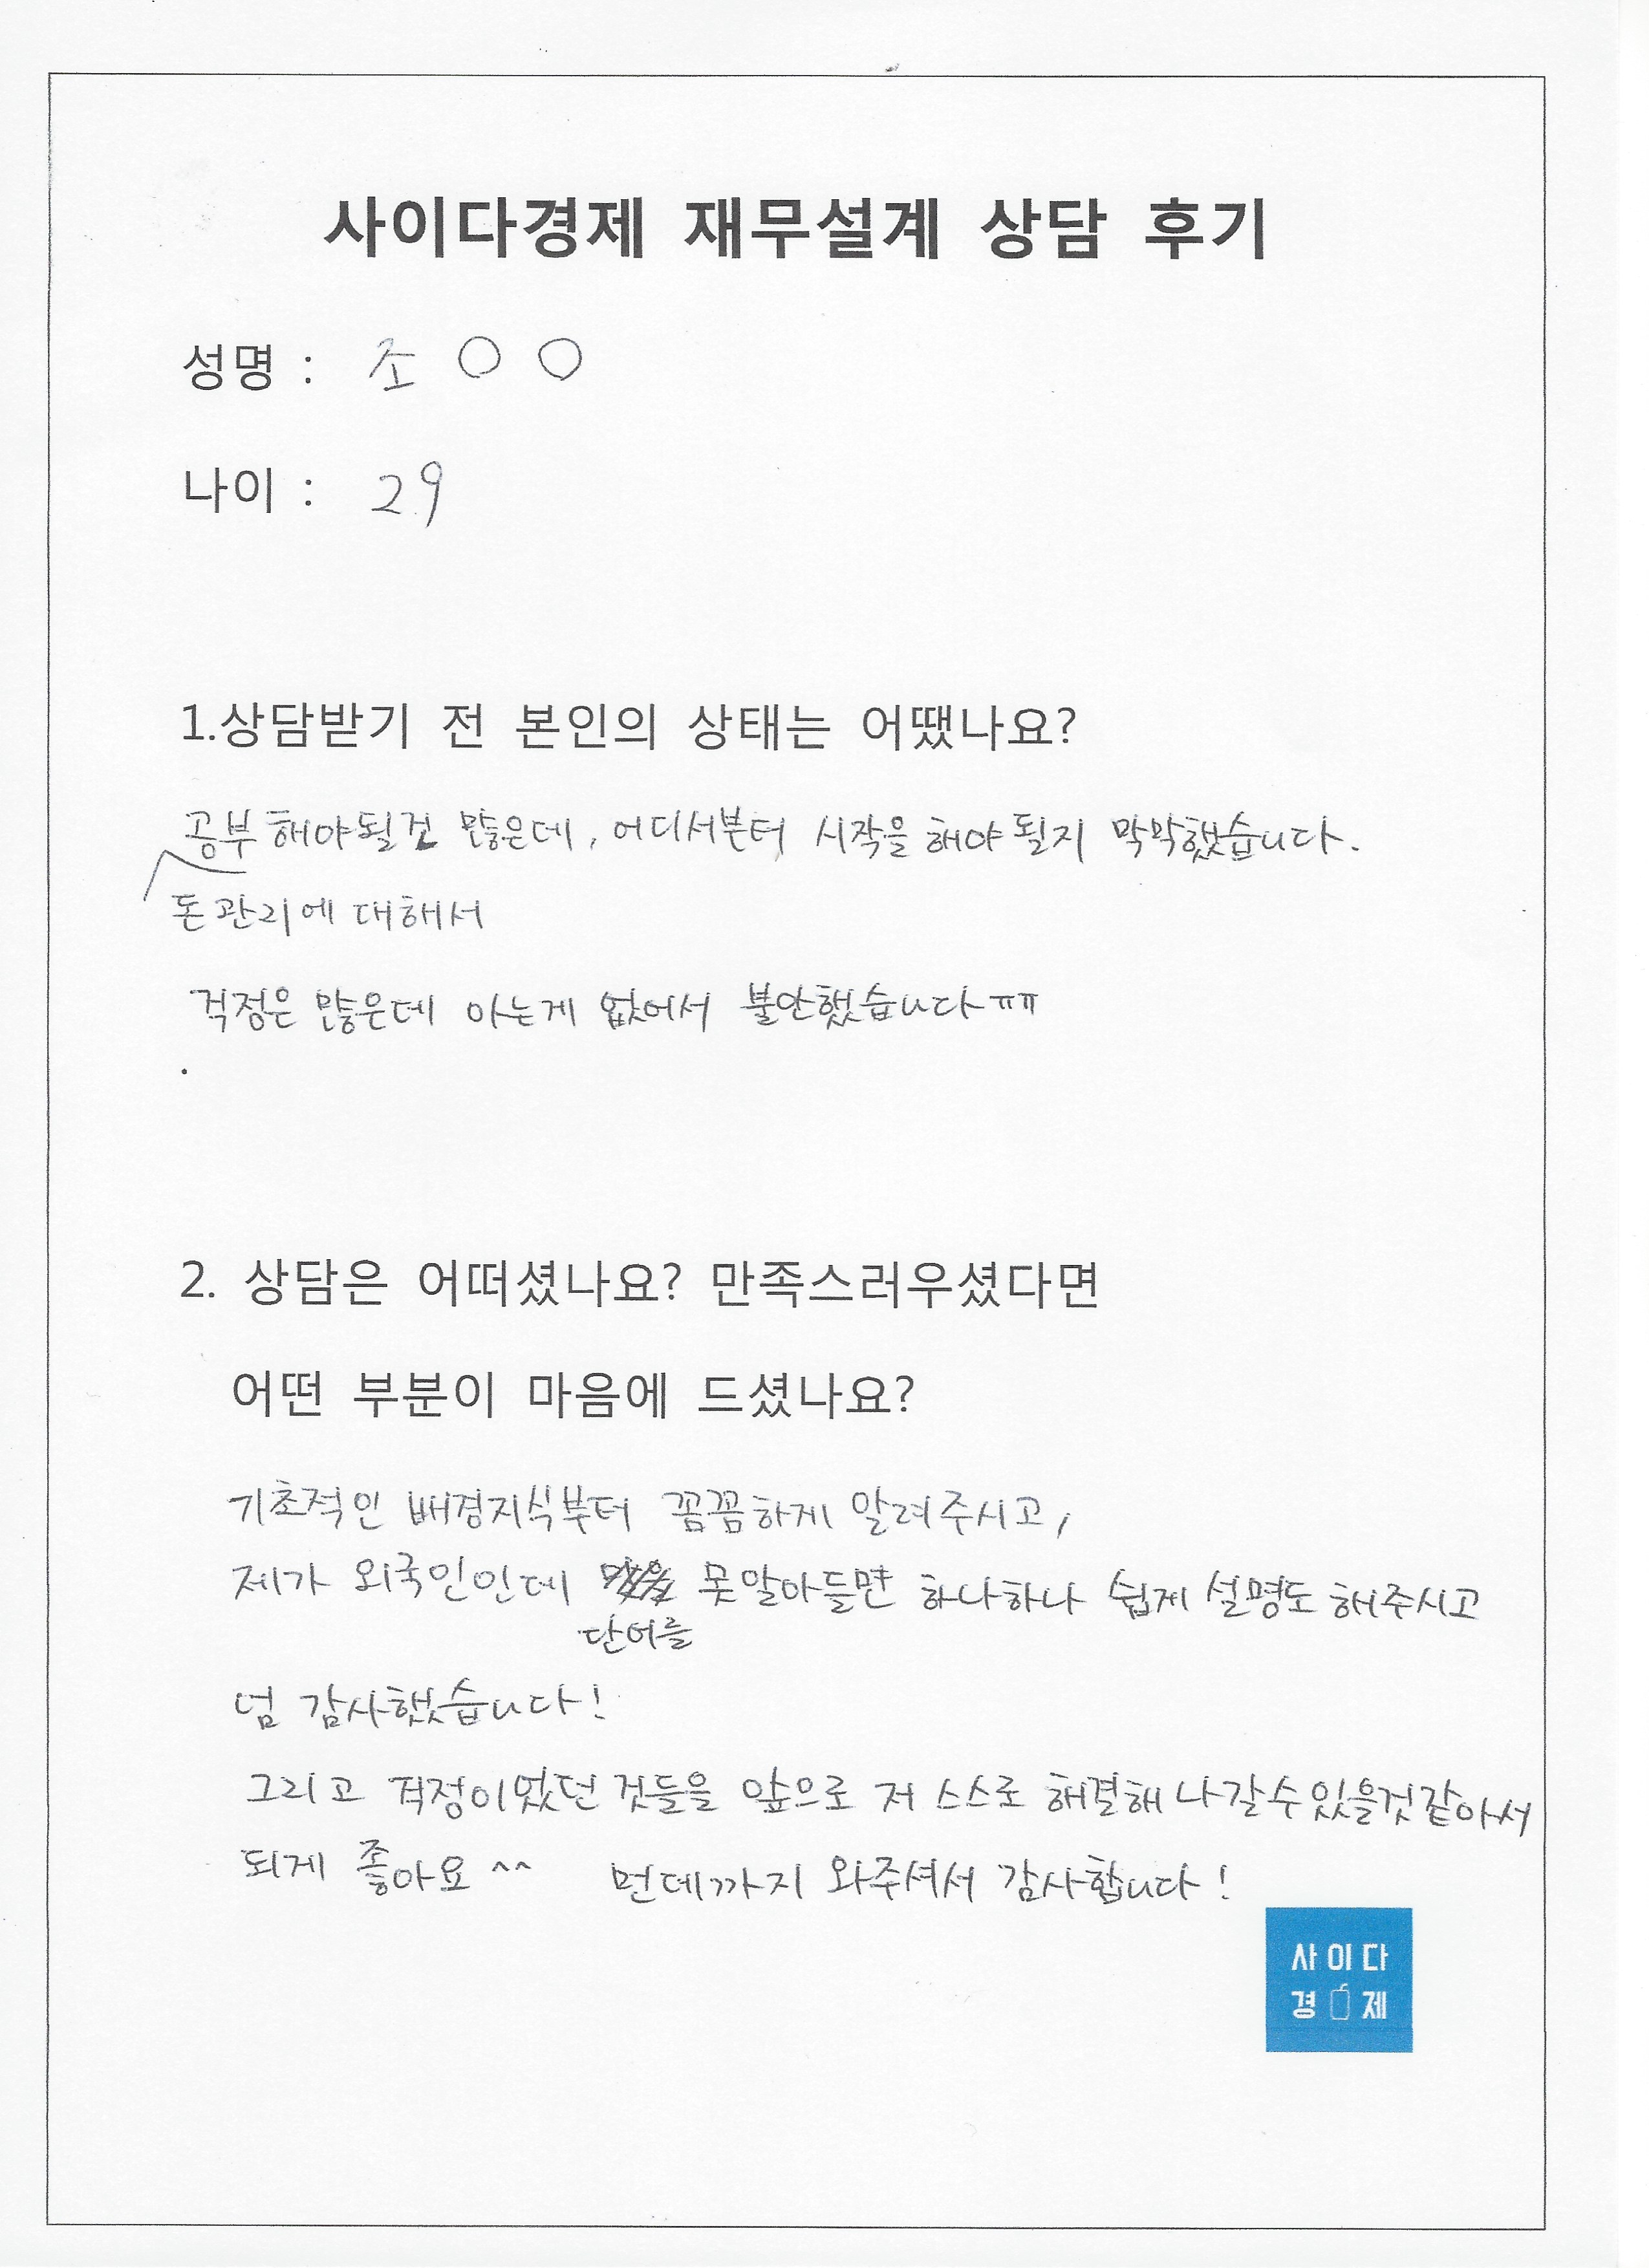 사이다경제 재무설계 상담 후기
성명 : 조 ○ ○
나이 : 29
1.상담받기 전 본인의 상태는 어땠나요?
공부해야될건 많은데, 어디서부터 시작을 해야 될지 막막했습니다.
돈관리에 대해서
걱정은 많은데 아는게 없어서 불안했습니다ㅠㅠ
2. 상담은 어떠셨나요? 만족스러우셨다면
어떤 부분이 마음에 드셨나요?
기초적인 배경지식부터 꼼꼼하게 알려주시고,
제가 외국인인데 못알아들면 하나하나 쉽게 설명도 해주시고
단어를
넘 감사했습니다!
그리고 걱정이었던 것들을 앞으로 저 스스로 해결해 나갈수있을것같아서
되게 좋아요 ^^ 먼데까지 와주셔서 감사합니다!
사이다
경제